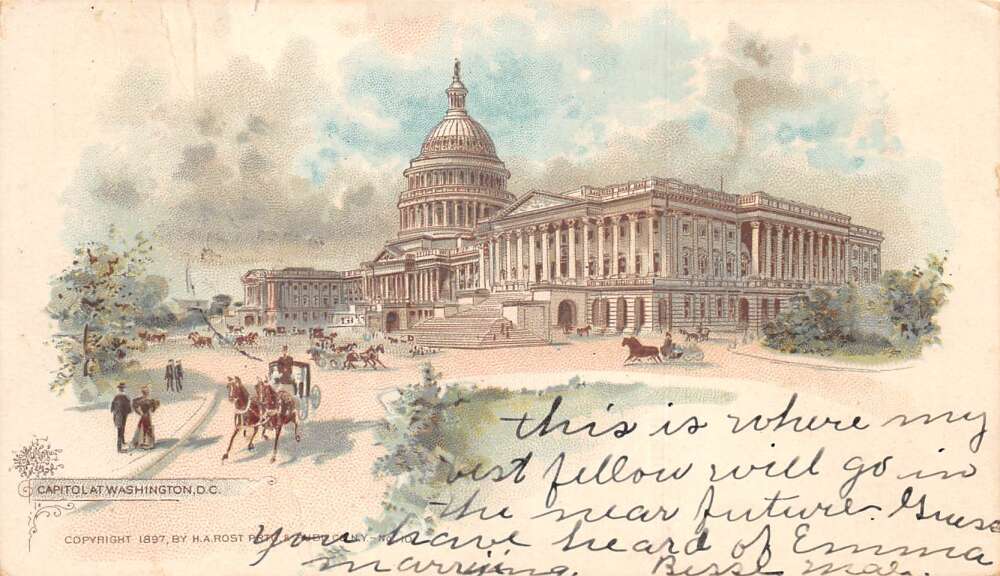 this is where my
best fellow will go in
the near future. Guess
you have heard of Emma
marrying.
CAPITOL AT WASHINGTON, D.C.
COPYRIGHT 1897, BY H.A. ROST PRTG. &